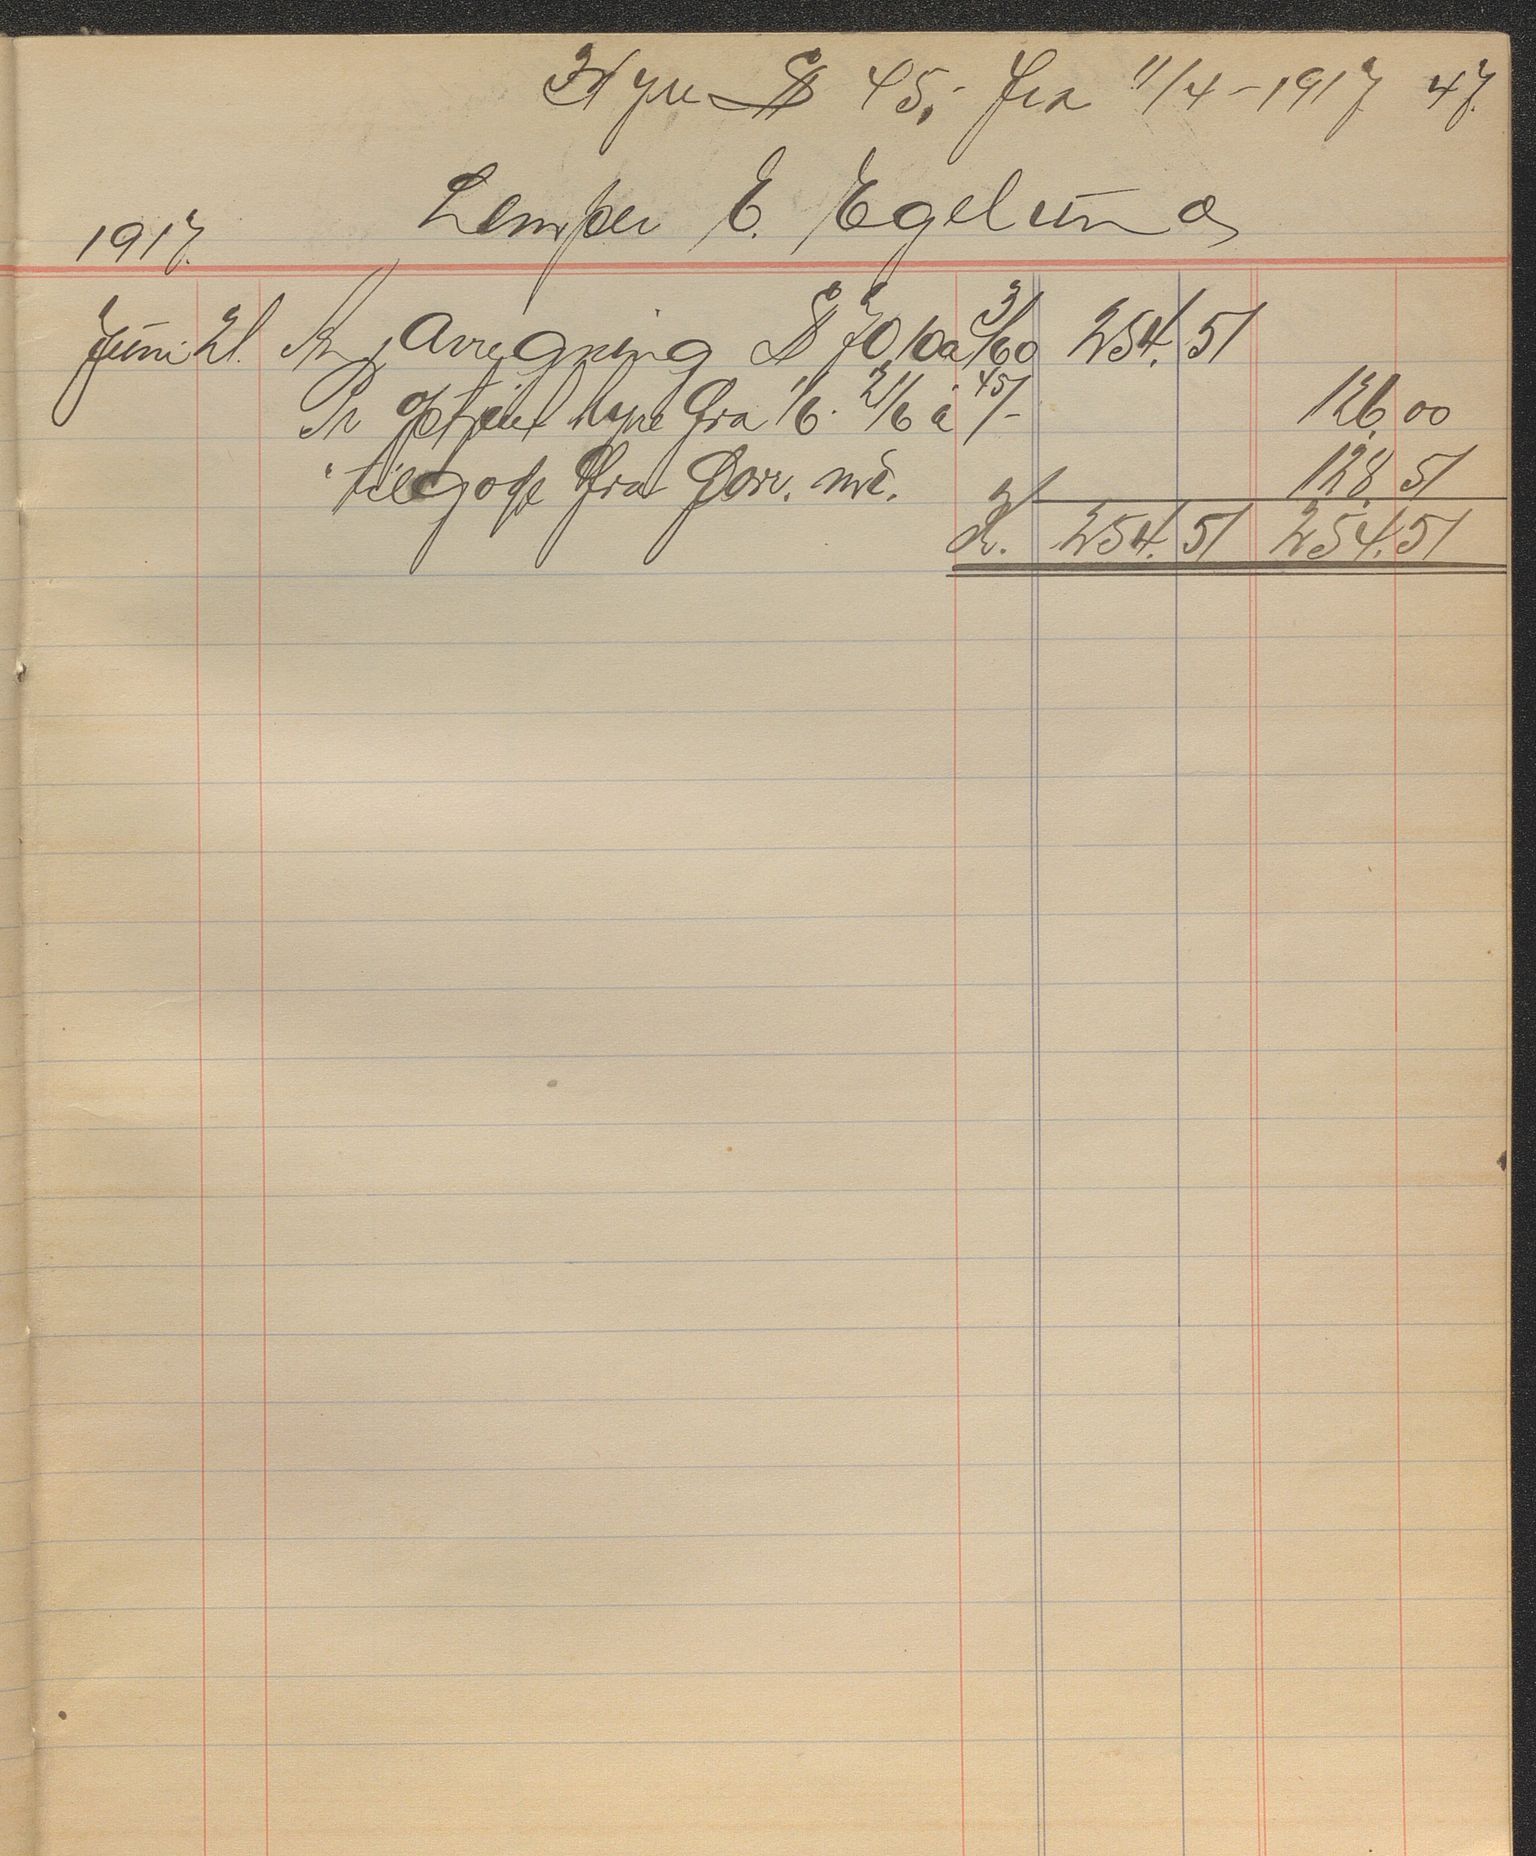 Hyre $ 45,- fra 11/4 - 1917 47.
Lemper E. Egelund
1917.
Juni 21. An Avregning $ 70,10 a 3/60 254. 51
Pr optjent hyre fra 1/6. 21/6 a 45/- 126,00
" tilgode fra forr. md. 128,51
Kr. 254. 51 254. 51